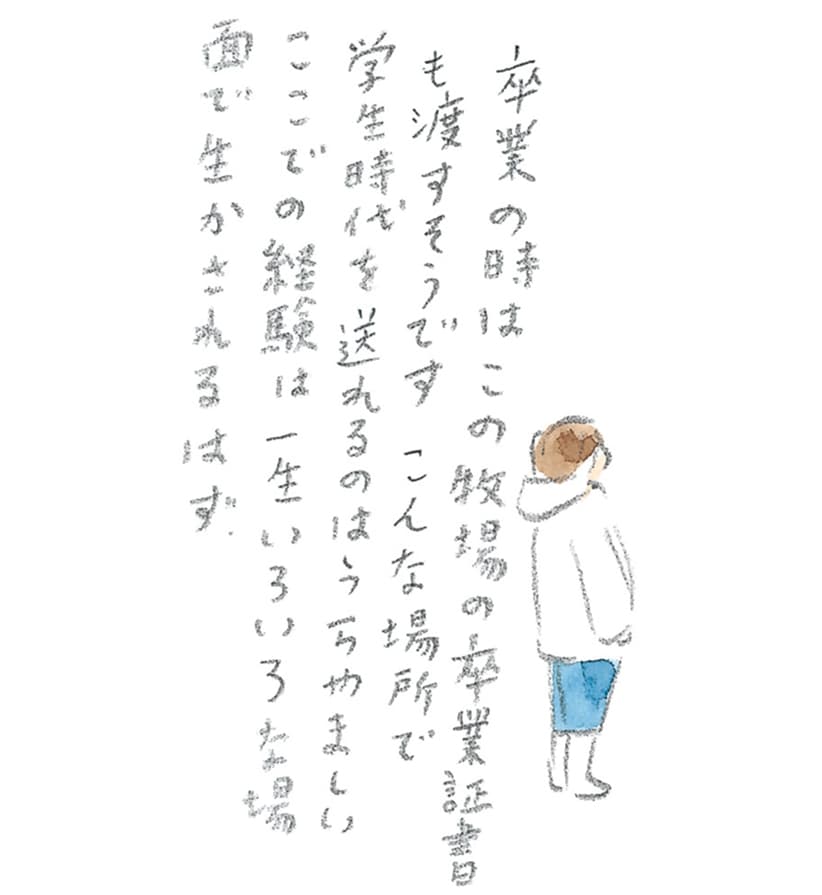 卒業の時はこの牧場の卒業証書
も渡すそうです こんな場所で
学生時代を送れるのはうらやましい
ここでの経験は一生いろいろな場
面で生かされるはず.